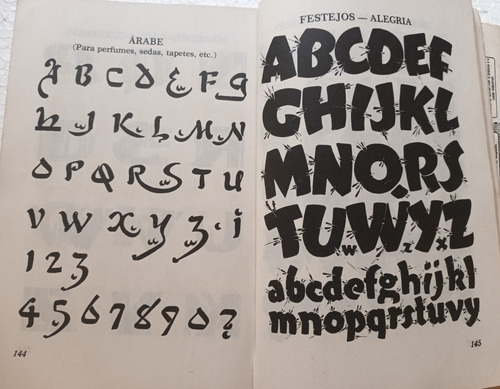 ÁRABE
(Para perfumes, sedas, tapetes, etc.)
A B C D E F G
H J K L M N
O P Q R S T U
V W X Y Z . I
1 2 3
4 5 6 7 8 9 0 ?
144
FESTEJOS — ALEGRIA
ABCDEF
GHIJKL
MNOPQRS
TUWYZ
w z x
abcdefghijkl
mnopqrstuvy
145